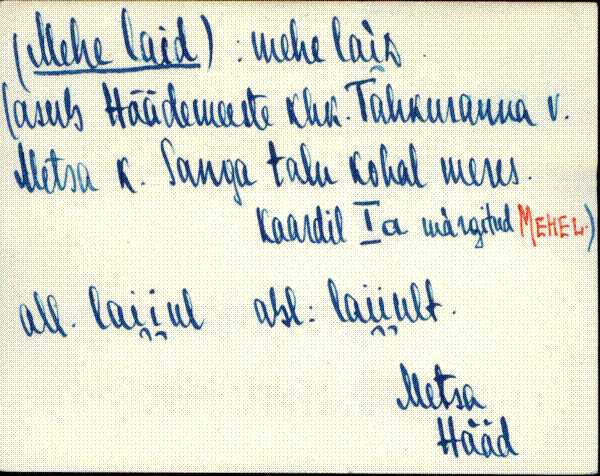 (Mehe laid) : mehe lai̯s.
(asub Häädemeeste khk. Tahkuranna v.
Metsa k. Sanga talu kohal meres.
Kaardil Ia märgitud MEHEL.)
all. lai̯i̯ul abl: lai̯i̯ult.
Metsa
Hääd